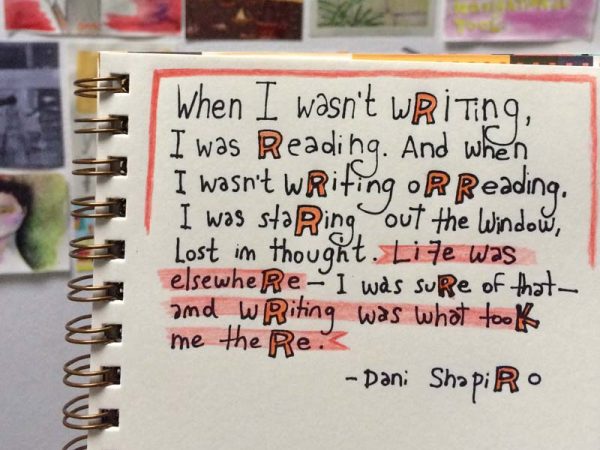 When I wasn't wRiTing,
I was Reading. And when
I wasn't wRiting oR Reading.
I was staRing out the window,
Lost in thought. Life was
elsewheRe – I was suRe of that –
and wRiting was what tooK
me theRe.
- Dani ShapiRo